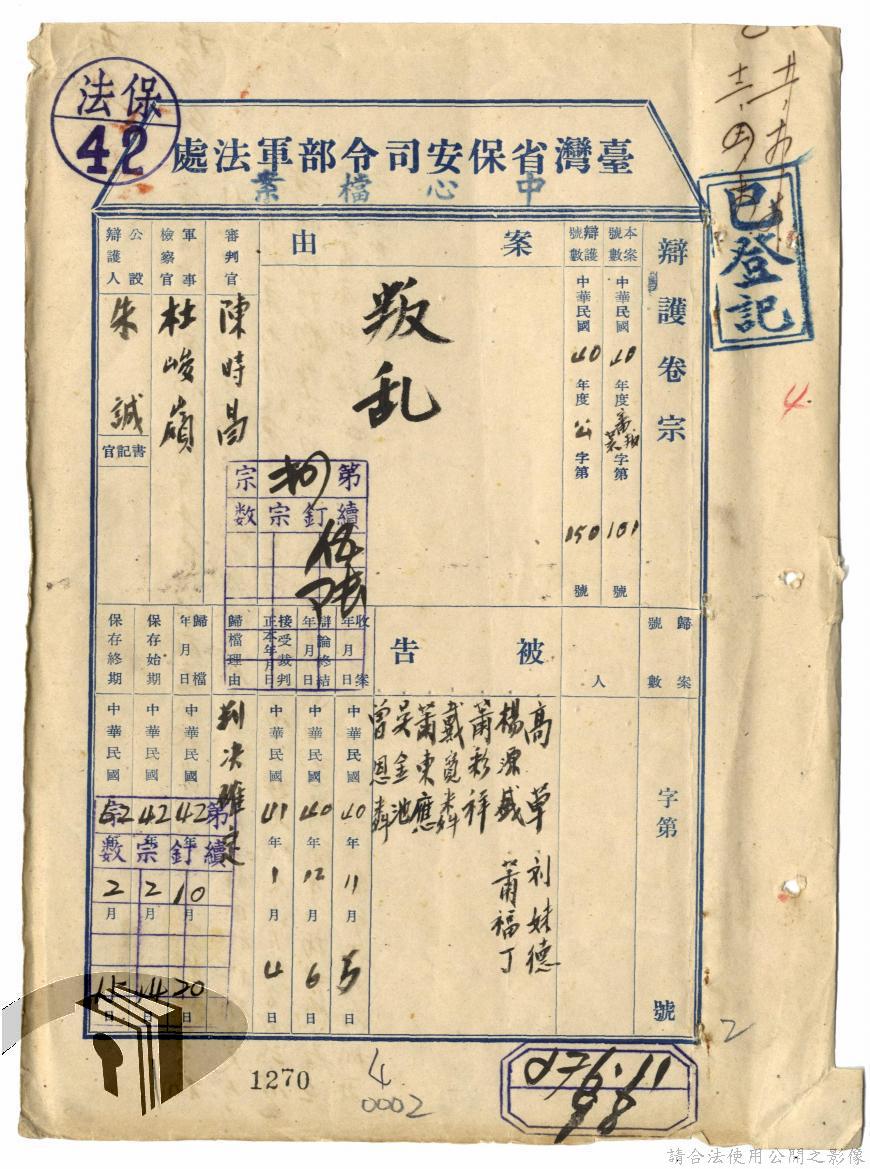 保法
42
臺灣省保安司令部軍法處
中心檔案
已登記
辯護卷宗
本案號數
中華民國40年度審叛字第181號
辯護號數
中華民國40年度公字第150號
案由
叛乱
審判官
陳時昌
軍事檢察官
杜峻嶺
公設辯護人
朱誠
書記官
第宗
續釘宗数
伍
歸案號數
字第號
被告人
高草
刘妹德
楊源盛
蕭福丁
蕭彩祥
戴寬森
蕭東應
吳金池
曾恩
收案年月日
中華民國40年11月5日
辯論終結年月日
中華民國40年12月6日
接受裁判正本年月日
中華民國41年1月4日
歸檔理由
判決確定
歸檔年月日
中華民國42年10月20日
保存始期
中華民國42年2月14日
保存終期
中華民國52年2月15日
第宗
續釘宗数
4
2
1270
4
0002
076.11
98
請合法使用公開之影像